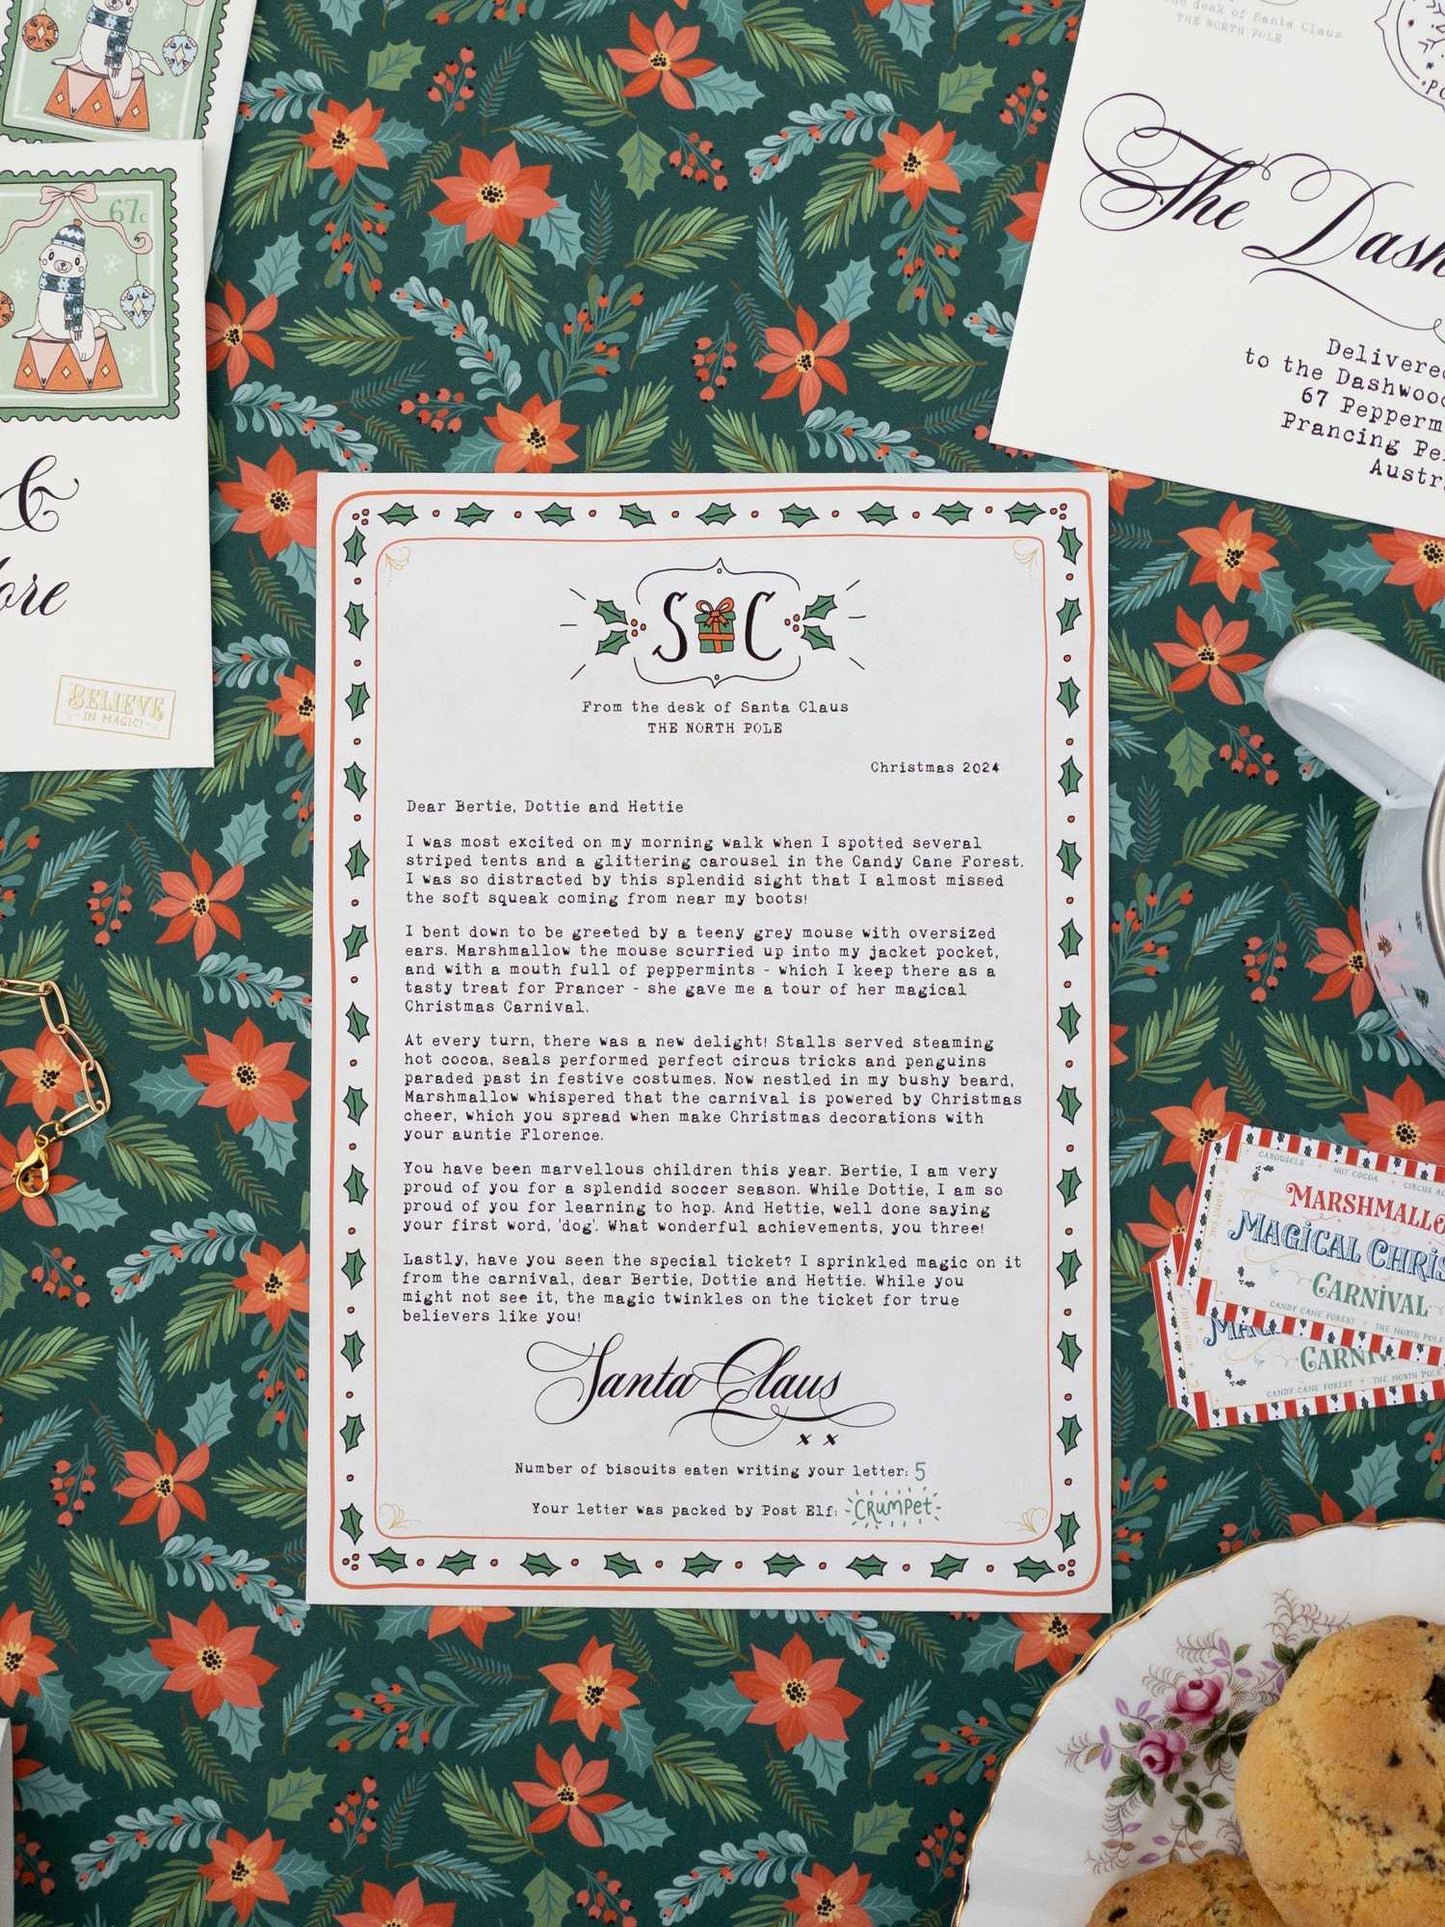 67c
&
BELIEVE
IN MAGIC!
the desk of Santa Claus
THE NORTH POLE
The
Delivered
to the
67
Prancing
S C
From the desk of Santa Claus
THE NORTH POLE
Christmas 2024
Dear Bertie, Dottie and Hettie
I was most excited on my morning walk when I spotted several
striped tents and a glittering carousel in the Candy Cane Forest.
I was so distracted by this splendid sight that I almost missed
the soft squeak coming from near my boots!
I bent down to be greeted by a teeny grey mouse with oversized
ears. Marshmallow the mouse scurried up into my jacket pocket,
and with a mouth full of peppermints - which I keep there as a
tasty treat for Prancer - she gave me a tour of her magical
Christmas Carnival.
At every turn, there was a new delight! Stalls served steaming
hot cocoa, seals performed perfect circus tricks and penguins
paraded past in festive costumes. Now nestled in my bushy beard,
Marshmallow whispered that the carnival is powered by Christmas
cheer, which you spread when make Christmas decorations with
your auntie Florence.
You have been marvellous children this year. Bertie, I am very
proud of you for a splendid soccer season. While Dottie, I am so
proud of you for learning to hop. And Hettie, well done saying
your first word, 'dog'. What wonderful achievements, you three!
Lastly, have you seen the special ticket? I sprinkled magic on it
from the carnival, dear Bertie, Dottie and Hettie. While you
might not see it, the magic twinkles on the ticket for true
believers like you!
Santa Claus
x x
Number of biscuits eaten writing your letter: 5
Your letter was packed by Post Elf: CRUMPET
CAROUSELS HOT COCOA CIRCUS
ADMIT ONE
MAGICAL
CARNIVAL
CANDY CANE FOREST THE NORTH POLE
CANDY CANE FOREST THE NORTH POLE